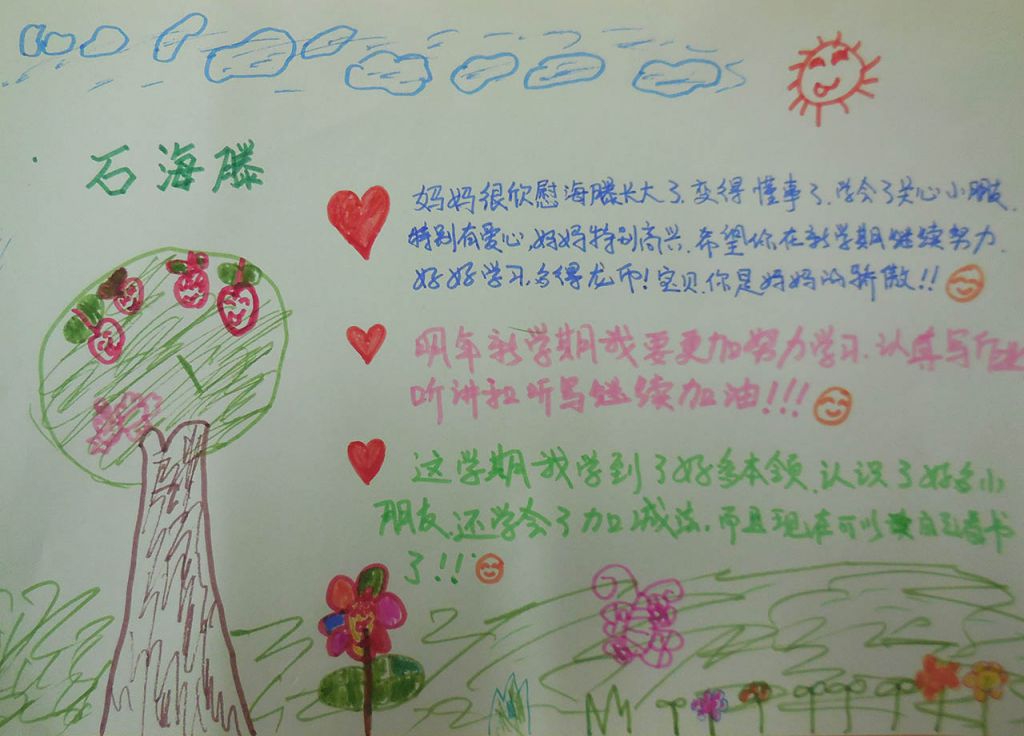 石海滕
妈妈很欣慰海滕长大了.变得懂事了.学会了关心小朋友.
特别有爱心.妈妈特别高兴.希望你在新学期继续努力.
好好学习.多得龙币!宝贝.你是妈妈的骄傲!!
明年新学期我要更加努力学习.认真写作业
听讲和听写继续加油!!!
这学期我学到了好多本领.认识了好多小
朋友.还学会了加减法.而且现在可以读自己看书
了!!